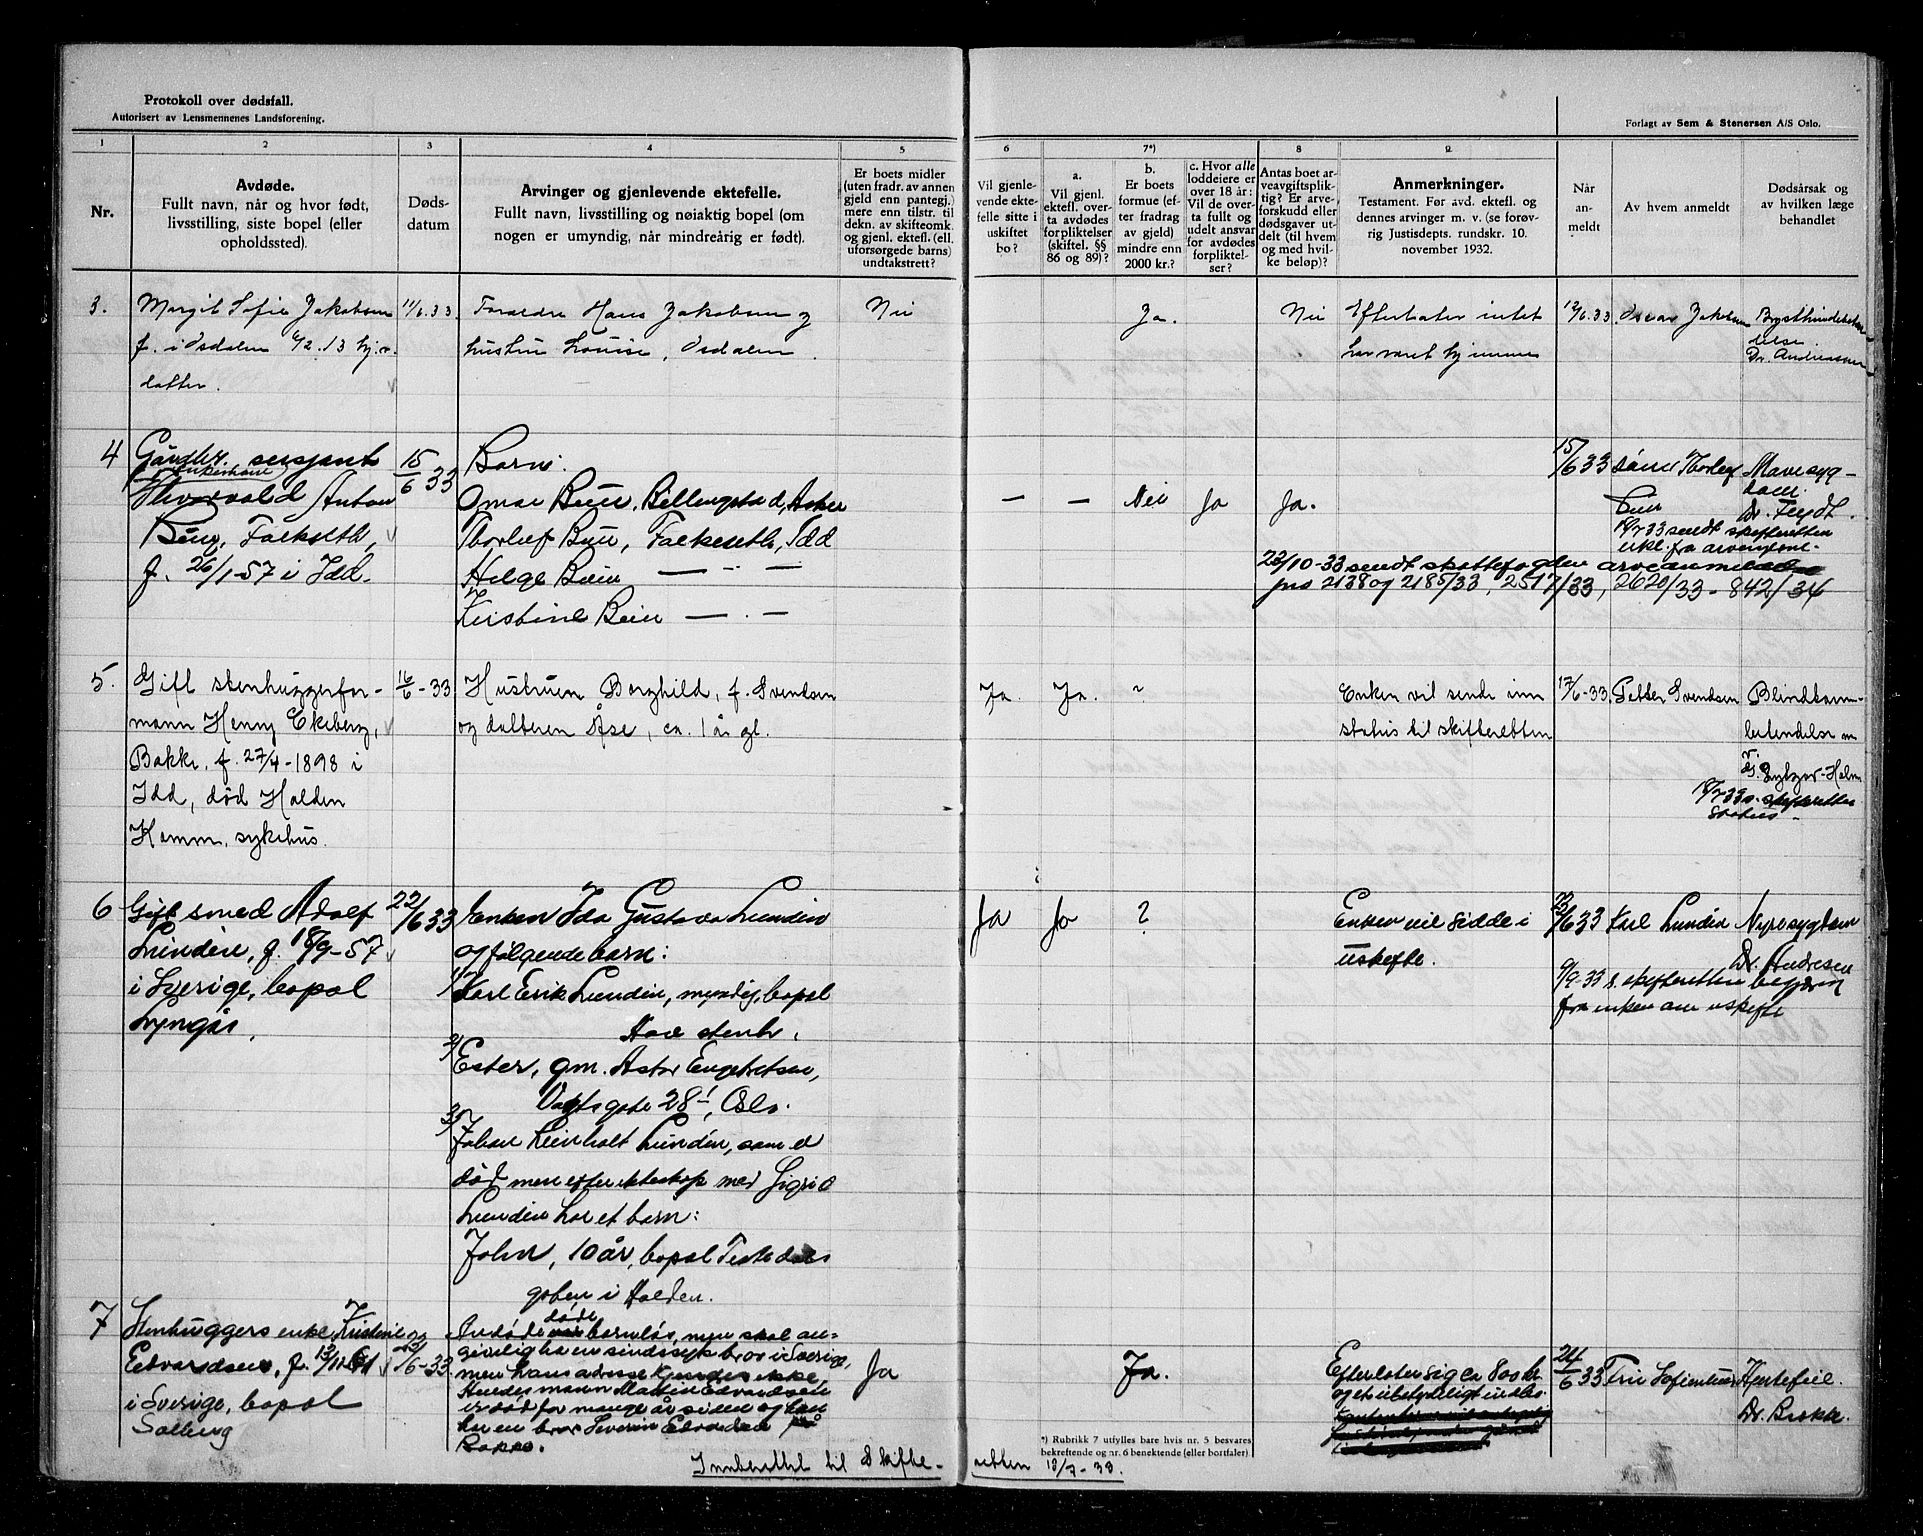 Protokoll over dødsfall.
Autorisert av Lensmennenes Landsforening.
Forlagt av Sem & Stenersen A/S Oslo.
1
2
3
4
5
6
7*)
8
9
Nr.
Avdøde.
Fullt navn, når og hvor født,
livsstilling, siste bopel (eller
opholdssted).
Døds-
datum
Arvinger og gjenlevende ektefelle.
Fullt navn, livsstilling og nøiaktig bopel (om
nogen er umyndig, når mindreårig er født).
Er boets midler
(uten fradr. av annen
gjeld enn pantegj.)
mere enn tilstr. til
dekn. av skifteomk.
og gjenl. ektef. (ell.
uforsørgede barns)
undtakstrett?
Vil gjenle-
vende ekte-
felle sitte i
uskiftet
bo?
a.
Vil gjenl.
ektefl. over-
ta avdødes
forpliktelser
(skiftel. §§
86 og 89)?
b.
Er boets
formue (ef-
ter fradrag
av gjeld)
mindre enn
2000 kr.?
c. Hvor alle
loddeiere er
over 18 år:
Vil de over-
ta fullt og
udelt ansvar
for avdødes
forpliktel-
ser?
Antas boet ar-
veavgiftsplik-
tig? Er arve-
forskudd eller
dødsgaver ut-
delt (til hvem
og med hvil-
ke beløp)?
Anmerkninger.
Testament. Før avd. ektefl. og
dennes arvinger m. v. (se forøv-
rig Justisdepts. rundskr. 10.
november 1932.
Når
an-
meldt
Av hvem anmeldt
Dødsårsak og
av hvilken læge
behandlet
3. Margit Sofie Jakobsen 11/6.33. Foreldre Hans Jakobsen og Nei Ja. Nei Efterlater intet 12/6.33. Oscar Jakobsen Brysthindebeten-
f. i Isdalen 6/2.13 hj.v. hustru Louise, Isdalen. har været hjemme delse.
datter. Dr. Andreassen
4 Gårdbr. sersjant 15/6 33 Barn: 15/6 33 sønn Thorleif Mavesyg-
(Enkemann) dom.
Thorvald Anton Omar Buer, Billengstad, Asker — — Nei Ja Ja. Buer Dr. Feydt.
Buer, Falkseth, Thorleif Buer, Falkeseth, Idd 18/7 33 sendt skifteretten
erkl. fra arvingene.
f. 26/1-57 i Idd. Helge Buer — " — 23/10-33 sendt skattefogden arveanmeldelse
jns 2138 og 2185/33, 2517/33, 2620/33 - 842/34
Kristine Buer — . —
5. Gift stenhuggerfor- 16/6-33 Hustruen Borghild, f. Svendsen Ja. Ja. ? Enken vil sende inn 17/6-33. Petter Svendsen Blindtarm-
mann Henry Ekeberg, og datteren Åse, ca. 1 år gl. status til skifteretten betendelse
Bakke, f. 27/4-1898 i
Idd, død Halden 18/7 33 s. skifteretten
status -
Komm. sykehus.
6 Gift smed Adolf 22/6 33 Enken Ida Gustava Lundin Ja Ja ? Enken vil sidde i 23/6 33 Karl Lundin Nyresygdom
Lundin, f. 18/9-57 og følgende barn: uskifte. Dr. Andresen
i Sverige, bopel 1/ Karl Erik Lundin, myndig, bopel 9/9-33 s. skifteretten begjæring
Lyngås. Hov stenbr. fra enken om uskifte
2/ Ester, gm. Astor Engebretsen,
Vogts gate 28 I, Oslo.
3/ Johan Reinholt Lundin, som er
død men efter ekteskap med Sigrid
Lundin har et barn:
John, 10 år, bopel Tistedals
gaten i Halden.
7 Stenhuggers enke Kristine 23/6-33 Avdøde døde barnløs, men skal an-
Edvardsen, f. 13/11-61 givelig ha en sindssyk bror i Sverige, Ja Ja. Efterlater sig ca 800 kr 24/6 33 Hjertefeil.
i Sverige, bopel men hans adresse kjendes ikke. og et ubetydeligt indbo
Solberg Hendes mann Martin Edvardsen Dr. Brekke.
er død for mange år siden og han
har en bror Severin Edvardsen på
Bakke.
*) Rubrikk 7 utfylles bare hvis nr. 5 besvares
bekreftende og nr. 6 benektende (eller bortfaller)
Innberettet til Skifte- retten 18/7-33.